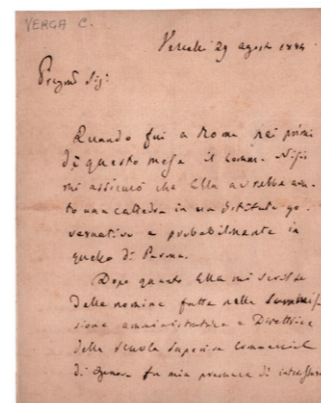 VERGA C.
Vercelli 29 agosto 1884
Pregmo Sig:
Quando fui a Roma nei primi
di questo mese il Comm. Nisio
mi assicurò che Ella avrebbe avu-
to una cattedra in un Istituto go-
vernativo e probabilmente in
quello di Parma.
Dopo questo Ella mi scrisse
della nomina fatta nella
sione amministratrice e Direttrice
della Scuola Superiore Commerciale
di Genova fu mia premura di